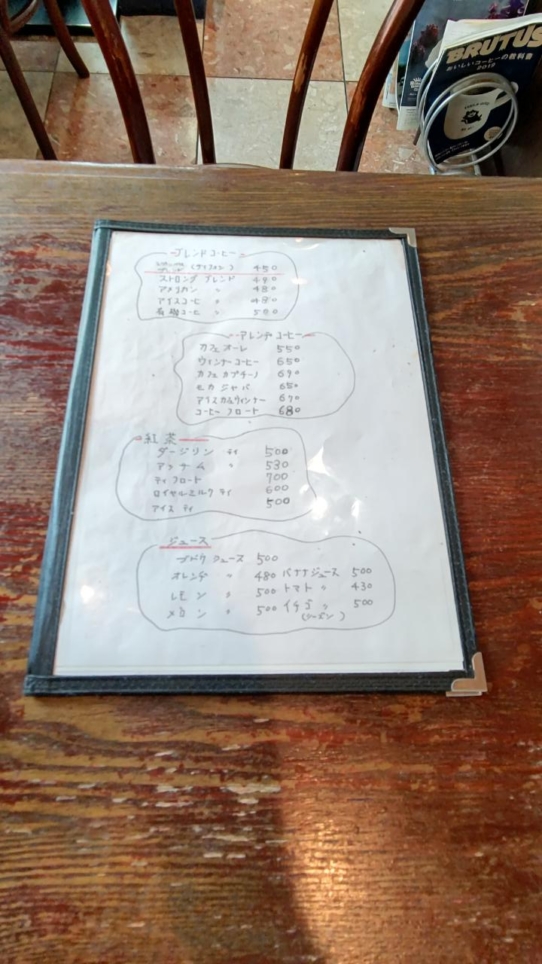 BRUTUS
おいしいコーヒーの教科書
2017
ブレンドコーヒー
450
ストロング ブレンド 480
アメリカン 〃 480
アイスコーヒ 〃 480
有機コーヒ 〃 500
アレンヂコーヒー
カフェオーレ 550
ウィンナーコーヒー 650
カフェカプチーノ 690
モカジャバ 650
アイスカフェウィンナー 690
コーヒーフロート 680
紅茶
ダージリン ティ 500
アッサーム 〃 530
ティフロート 700
ロイヤルミルクティ 600
アイスティ 500
ジュース
ブドウジュース 500
オレンヂ 〃 480 バナナジュース 500
レモン 〃 500 トマト 〃 430
メロン 〃 500 イチゴ 〃 500
(シーズン)